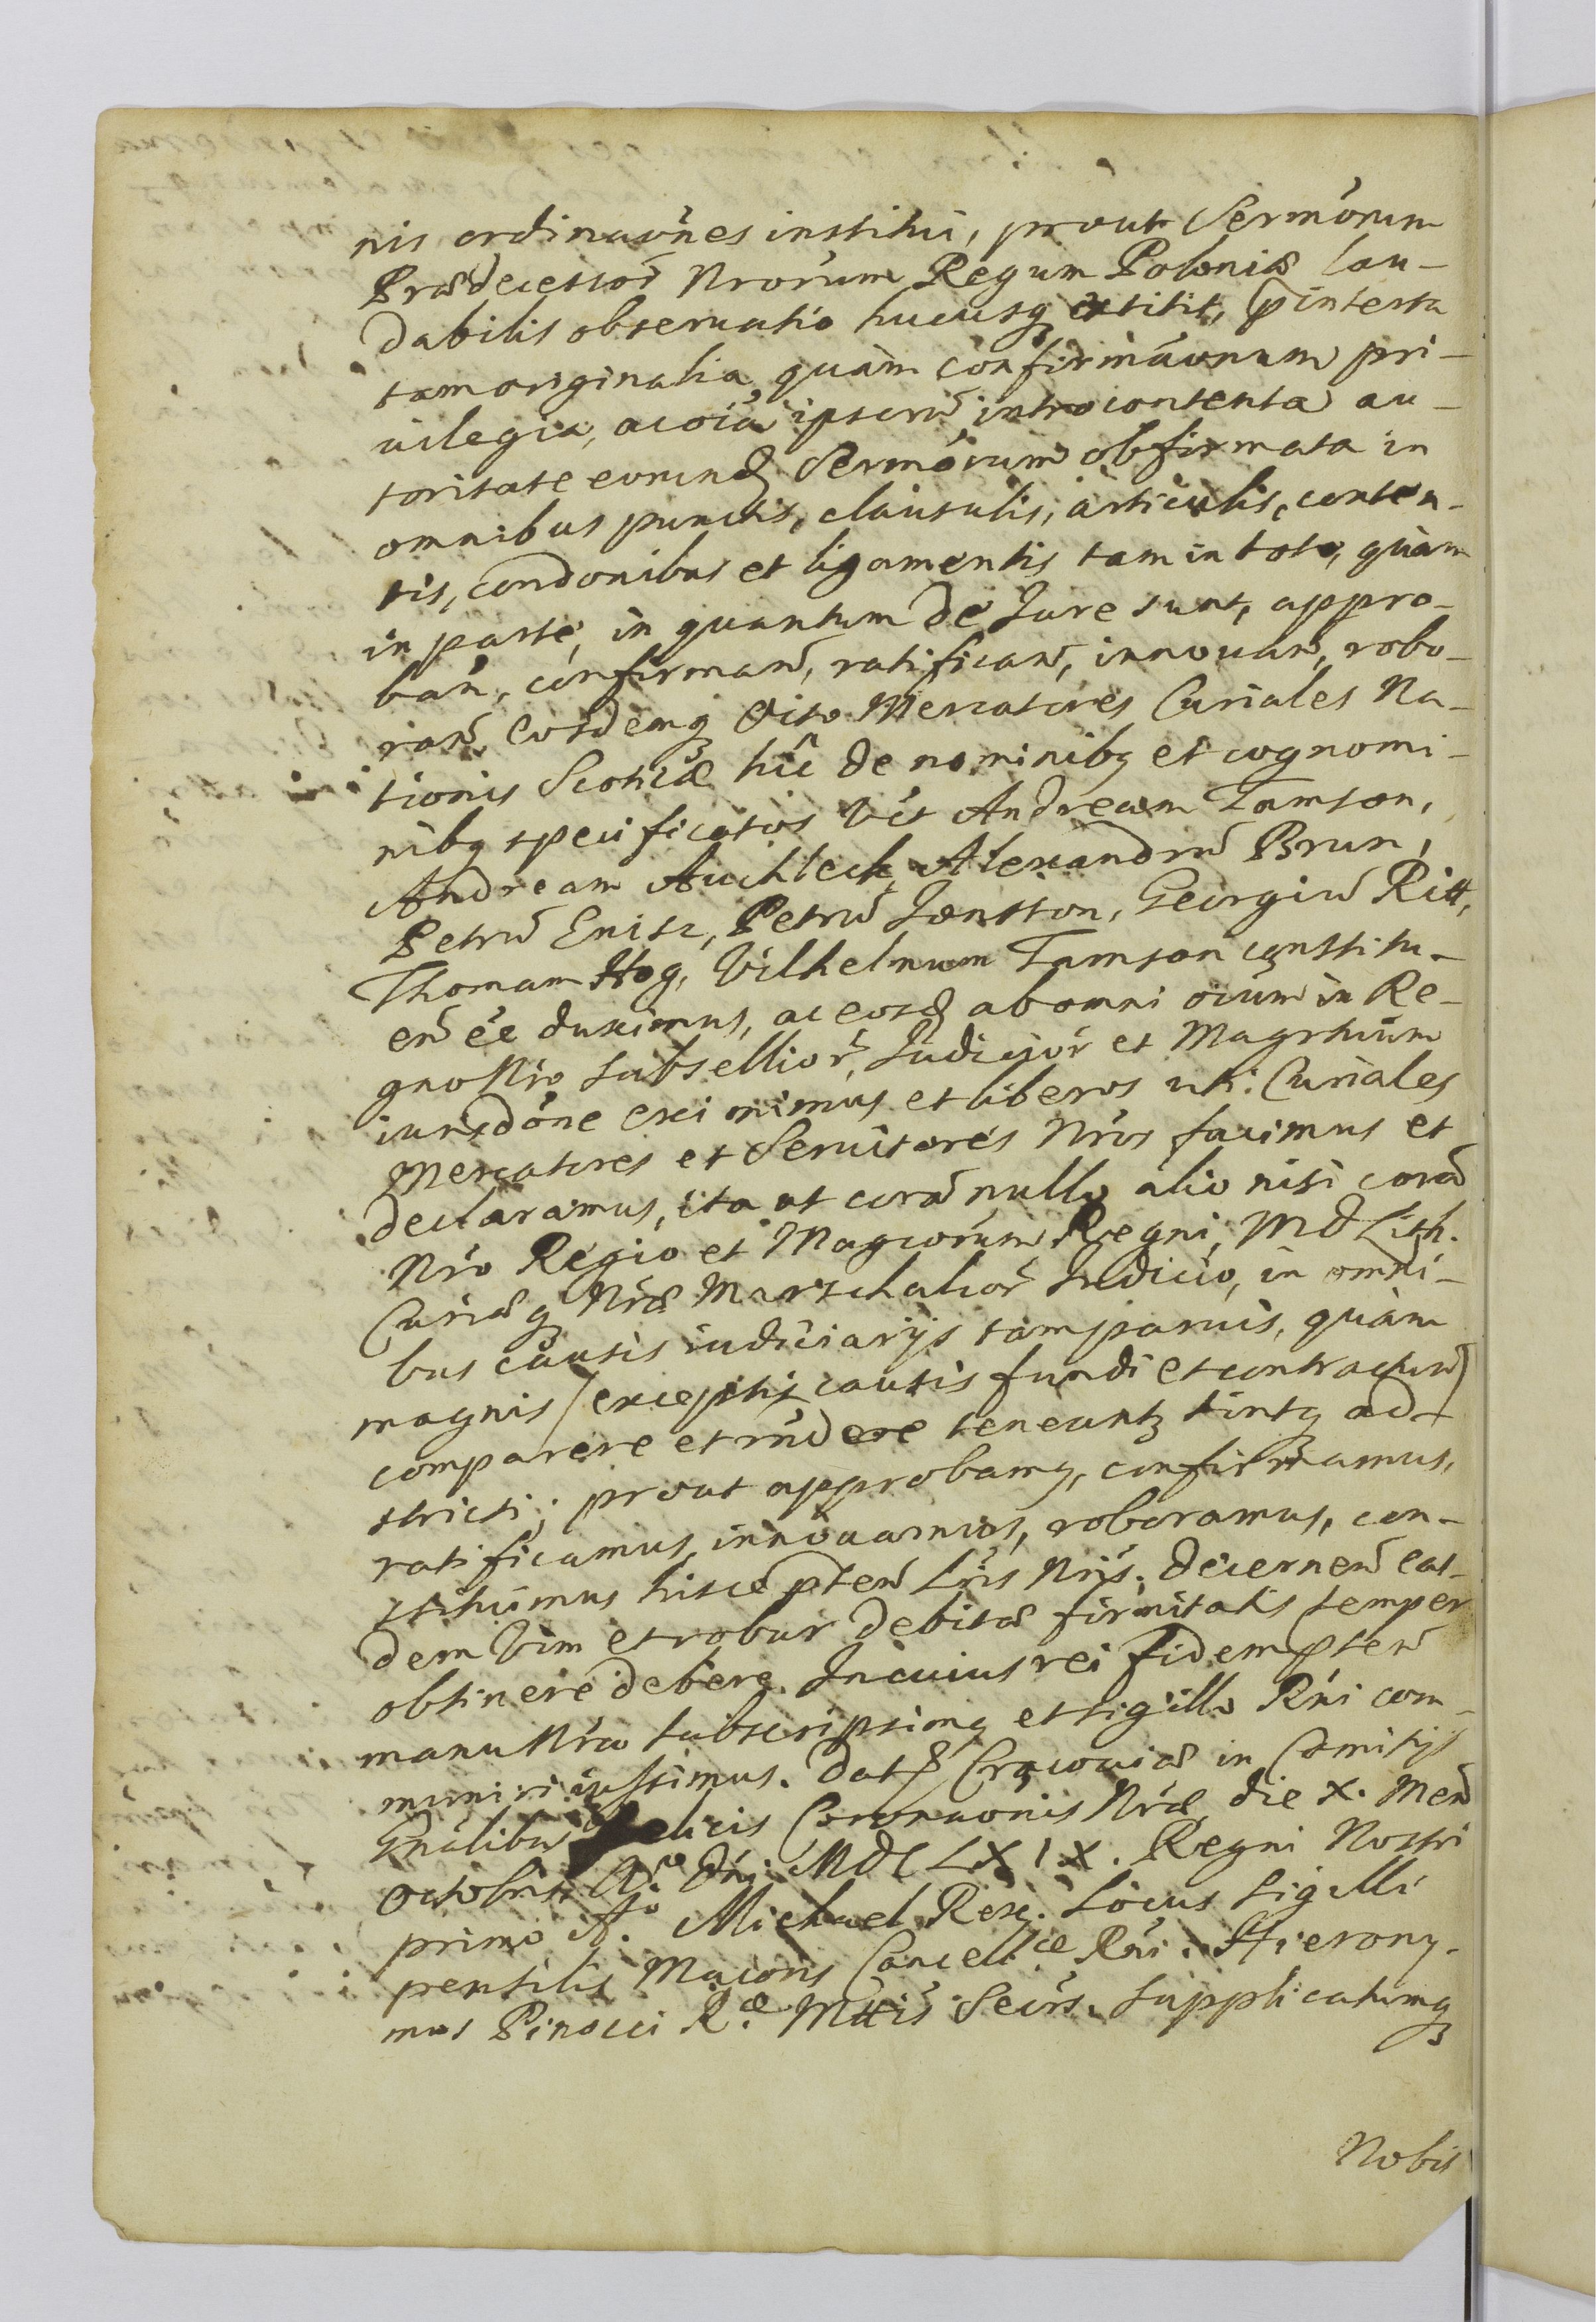 nis ordinaōnes institui, prout Serm̄orum
Prædecessor̄ Nrōrum Regum Poloniæ lau-
dabilis obseruatio hucusq́ꝫ extitit, p̄intersta
tam originalia, quàm confirmāonum pri-
uilegia, ac oīa ipsorū introcontenta au-
toritate eorund Serm̄orum obfirmata in
omnibus punctis, clausulis, articulis, conten-
tis, condōnibus et ligamentis tam in toto, quàm
in parte, in quantum de Jure sunt, appro-
ban̄, confirman̄, ratifican̄, innouan̄, robo-
ran̄, Eosdemqꝫ Octo Mercatores Curiales Na-
tionis Scoticæ hîc de nominibꝫ et cognomi-
nibꝫ specificatos Vct Andream Tamson,
Andream Auchleck, Alexandrū Brun,
Petrū Enisz, Petrū Jonston, Georgiū Ritt,
Thomam Hog, Vilhelmum Tamson constitu-
en̄ ee duximus, ac eosd ab omni oīum in Re-
gno Nro Subsellior̄, Judicior̄ et Magrtuum
iurisdōne eximimus et liberos uti Curiales
Mercatores et Seruitores Nros facimus et
declaramus, ita ut corā nullo alio nisi corā
Nro Regio et Magcorum Regni, M D Lith.
Curiæqꝫ Nræ Marschalcor̄ Judicio, in omni-
bus causis iudiciarijs tam paruis, quàm
magnis /exceptis causis fundi et contractuū/
comparere et rndere teneantꝫ sintqꝫ ad-
stricti; prout approbamꝫ, confirmamus,
ratificamus, innouamus, roboramus, con-
stituimus hisce pten̄ Lris Nris. decernen̄ eas-
dem Vim et robur debitæ firmitatis semper
obtinere debere. In cuius rei fidem pten̄
manu Nra subscripsimꝫ et sigillo Rni com-
muniri iussimus. Dat Cracouiæ in Comitijs
Gnālibus felicis Coronaonis Nræ die X. Men̄
Octobris A.º Dni MDCLXIX. Regni Nostri
primo Aº. Michael Rex. Locus Sigilli
pensilis Maioris Cancell.æ Rni. Hierony-
mus Pinocci R.æ Mttis Secrs. Supplicatumqꝫ
Nobis